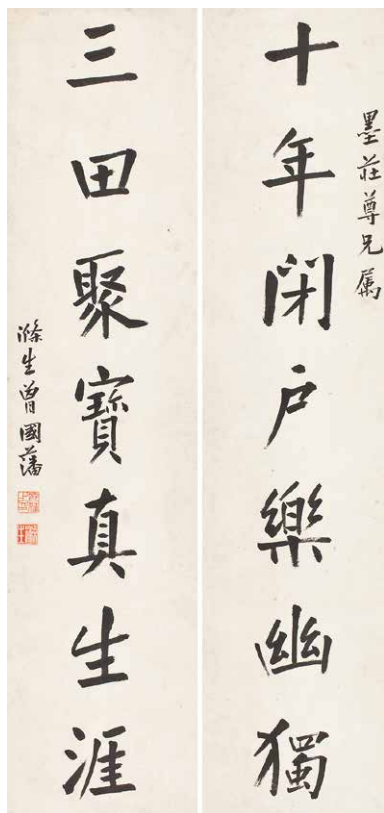 墨莊尊兄属
十年閉户樂幽獨
三田聚寶真生涯
滌生曾國藩